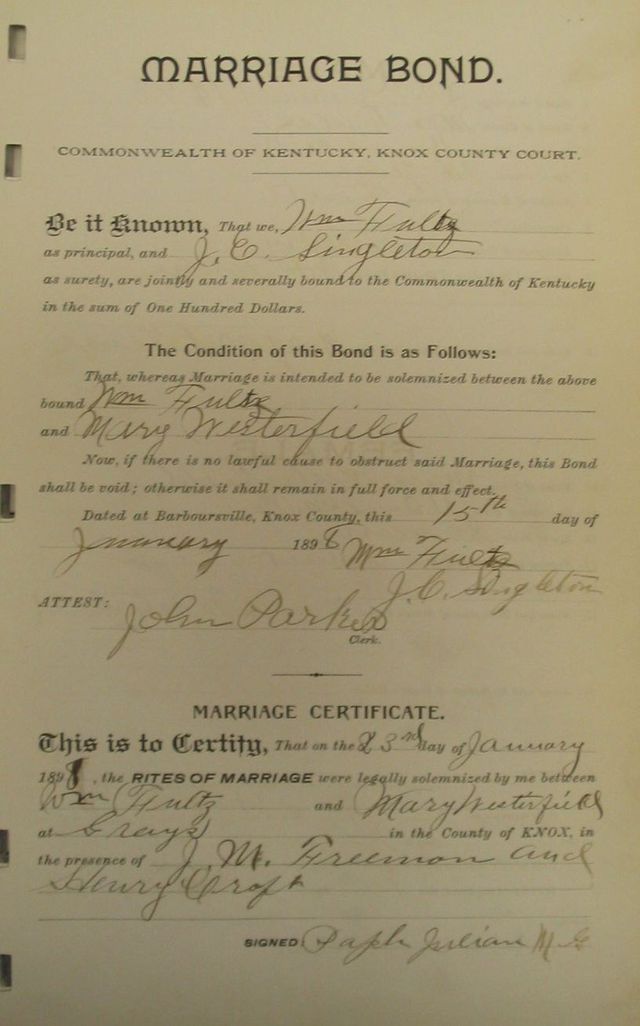 MARRIAGE BOND.
COMMONWEALTH OF KENTUCKY, KNOX COUNTY COURT.
Be it Known, That we, Wm Fultz
as principal, and J. C. Singleton
as surety, are jointly and severally bound to the Commonwealth of Kentucky
in the sum of One Hundred Dollars.
The Condition of this Bond is as Follows:
That, whereas Marriage is intended to be solemnized between the above
bound Wm Fultz
and Mary Westerfield
Now, if there is no lawful cause to obstruct said Marriage, this Bond
shall be void; otherwise it shall remain in full force and effect.
Dated at Barboursville, Knox County, this 15th day of
January 1898 Wm Fultz
J. C. Singleton
ATTEST: John Parker
Clerk.
MARRIAGE CERTIFICATE.
This is to Certify, That on the 23rd day of January
1898, the RITES OF MARRIAGE were legally solemnized by me between
Wm Fultz and Mary Westerfield
at Grays in the County of KNOX, in
the presence of J. M. Freeman and
Henry Croft
SIGNED Julian M G